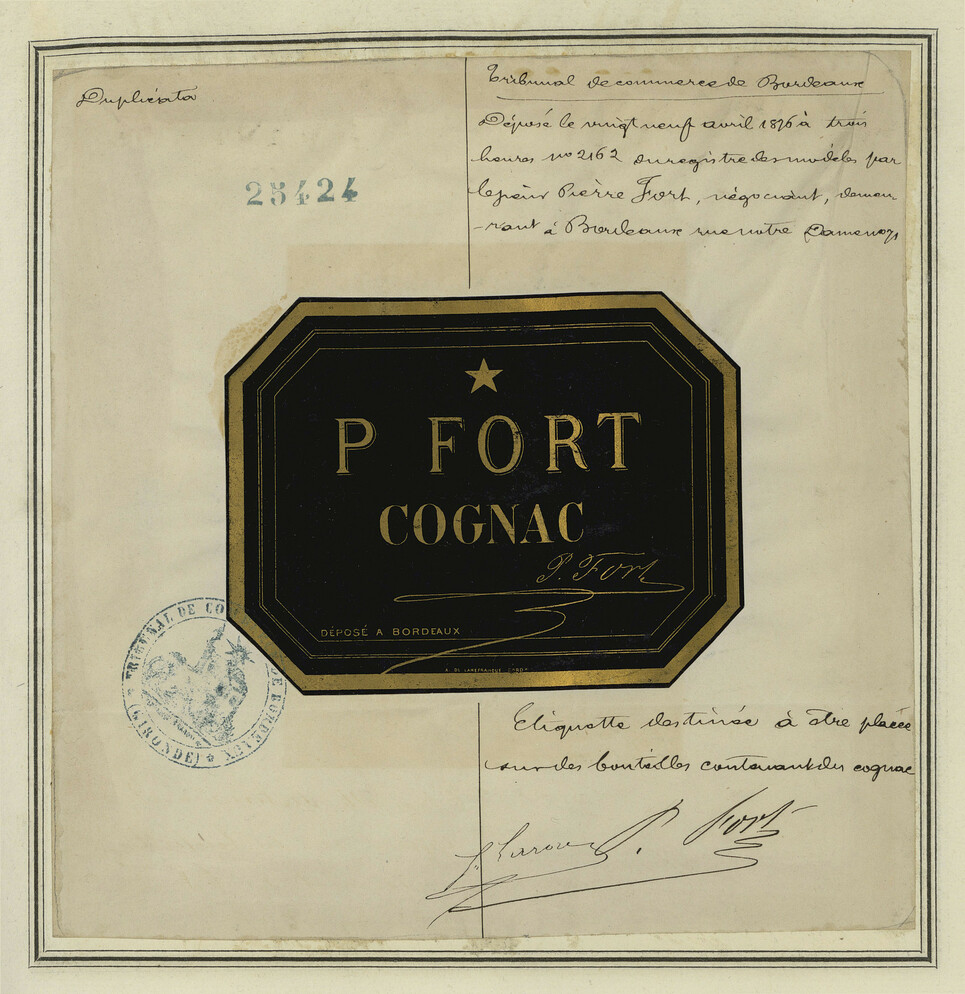 Duplicata
Tribunal de commerce de Bordeaux
Déposé le vingt neuf avril 1876 à trois
heures no 2162 du registre des modèles par
le sieur Pierre Fort, négociant, demeu-
-rant à Bordeaux rue notre Dame no 71
25424
P FORT
COGNAC
P. Fort
DÉPOSÉ A BORDEAUX
TRIBUNAL DE CO
DE BORDEAUX
(GIRONDE)
Etiquette destinée à être placée
sur des bouteilles contenant du cognac
P. Fort